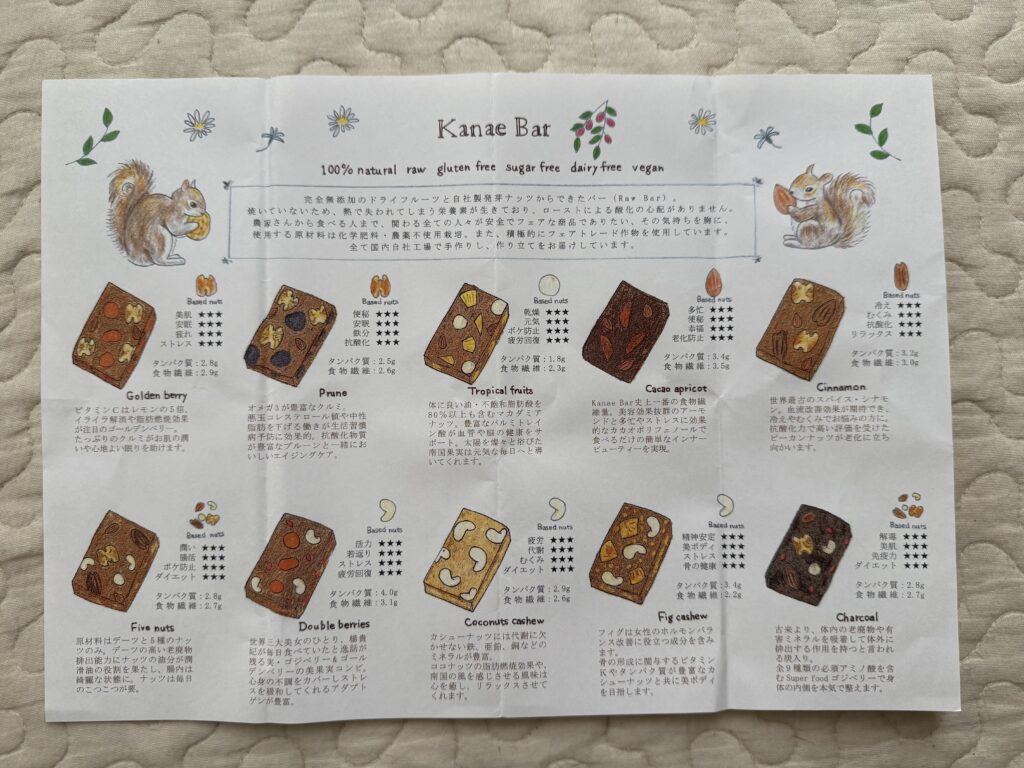 Kanae Bar
100% natural raw gluten free sugar free dairy free vegan
完全無添加のドライフルーツと自社製発芽ナッツからできたバー（Raw Bar）。
焼いていないため、熱で失われてしまう栄養素が生きており、ローストによる酸化の心配がありません。
農家さんから食べる人まで、関わる全ての人々が安全でフェアな商品でありたい。その気持ちを胸に、
使用する原材料は化学肥料・農薬不使用栽培。また、積極的にフェアトレード作物を使用しています。
全て国内自社工場で手作りし、作り立てをお届けしています。
Based nuts
美肌 ★★★
安眠 ★★★
疲れ ★★★
ストレス ★★★
タンパク質：2.8g
食物繊維：2.9g
Golden berry
ビタミンCはレモンの5倍。
イライラ解消や脂肪燃焼効果
が注目のゴールデンベリー。
たっぷりのクルミがお肌の潤
いや心地よい眠りを助けます。
Based nuts
便秘 ★★★
安眠 ★★★
鉄分 ★★★
抗酸化 ★★★
タンパク質：2.5g
食物繊維：2.6g
Prune
オメガ3が豊富なクルミ。
悪玉コレステロール値や中性
脂肪を下げる働きが生活習慣
病予防に効果的。抗酸化物質
が豊富なプルーンと一緒にお
いしいエイジングケア。
Based nuts
乾燥 ★★★
元気 ★★★
ボケ防止 ★★★
疲労回復 ★★★
タンパク質：1.8g
食物繊維：2.3g
Tropical fruits
体に良い油・不飽和脂肪酸を
80％以上も含むマカダミア
ナッツ。豊富なパルミトレイ
ン酸が血管や脳の健康をサ
ポート。太陽を燦々と浴びた
南国果実は元気な毎日へと導
いてくれます。
Based nuts
多忙 ★★★
便秘 ★★★
幸福 ★★★
老化防止 ★★★
タンパク質：3.4g
食物繊維：3.5g
Cacao apricot
Kanae Bar史上一番の食物繊
維量。美容効果抜群のアーモ
ンドと多忙やストレスに効果
的なカカオポリフェノールで
食べるだけの簡単なインナー
ビューティーを実現。
Based nuts
冷え ★★★
むくみ ★★★
抗酸化 ★★★
リラックス ★★★
タンパク質：3.2g
食物繊維：3.0g
Cinnamon
世界最古のスパイス・シナモ
ン。血流改善効果が期待でき、
冷えやむくみでお悩みの方に。
抗酸化力で高い評価を受けた
ピーカンナッツが老化に立ち
向かいます。
Based nuts
潤い ★★★
腸活 ★★★
ボケ防止 ★★★
ダイエット ★★★
タンパク質：2.8g
食物繊維：2.7g
Five nuts
原材料はデーツと5種のナッ
ツのみ。デーツの高い老廃物
排出能力にナッツの油分が潤
滑油の役割を果たし、腸内は
綺麗な状態に。ナッツは毎日
のこつこつが要。
Based nuts
活力 ★★★
若返り ★★★
ストレス ★★★
疲労回復 ★★★
タンパク質：4.0g
食物繊維：3.1g
Double berries
世界三大美女のひとり、楊貴
妃が毎日食べていたと逸話が
残る実・ゴジベリー＆ゴール
デンベリーの美果実コンビ。
心身の不調をカバーしストレ
スを緩和してくれるアダプト
ゲンが豊富。
Based nuts
疲労 ★★★
代謝 ★★★
むくみ ★★★
ダイエット ★★★
タンパク質：2.9g
食物繊維：2.6g
Coconuts cashew
カシューナッツには代謝に欠
かせない鉄、亜鉛、銅などの
ミネラルが豊富。
ココナッツの脂肪燃焼効果や、
南国の風を感じさせる風味は
心を癒し、リラックスさせて
くれます。
Based nuts
精神安定 ★★★
美ボディ ★★★
ストレス ★★★
骨の健康 ★★★
タンパク質：3.4g
食物繊維：2.2g
Fig cashew
フィグは女性のホルモンバラ
ンス改善に役立つ成分を含み
ます。
骨の形成に関与するビタミン
Kやタンパク質が豊富なカ
シューナッツと共に美ボディ
を目指します。
Based nuts
解毒 ★★★
美肌 ★★★
免疫力 ★★★
ダイエット ★★★
タンパク質：2.8g
食物繊維：2.7g
Charcoal
古来より、体内の老廃物や有
害ミネラルを吸着して体外に
排出する作用を持つと言われ
る炭入り。
全9種類の必須アミノ酸を含
むSuper foodゴジベリーで身
体の内側を本気で整えます。